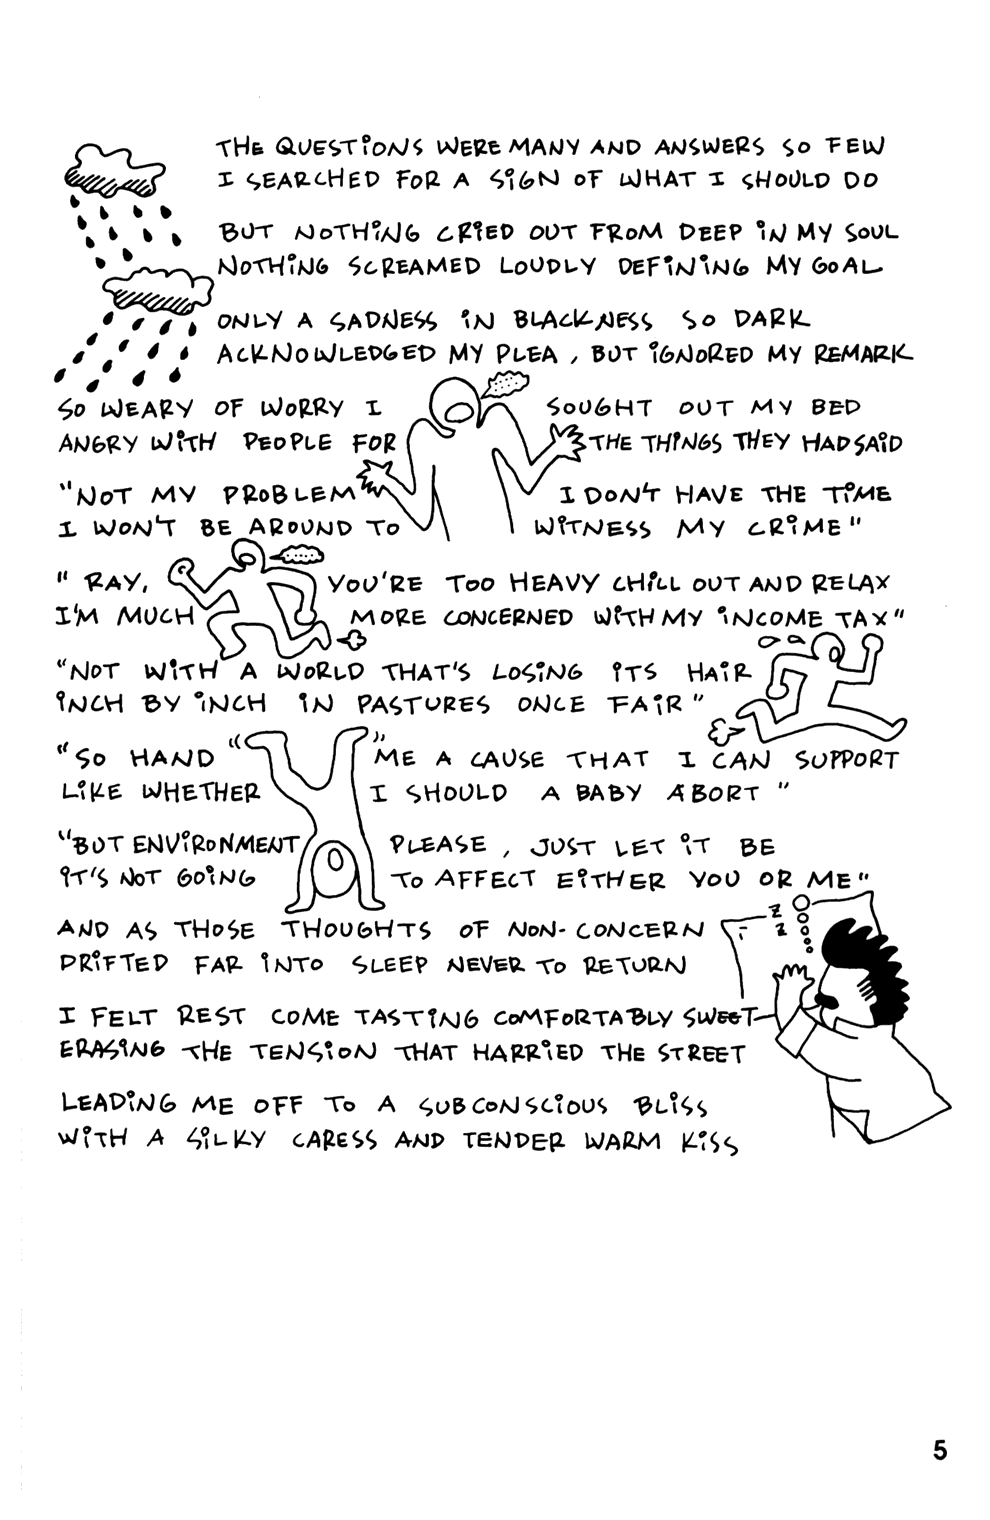 THE QUESTIONS WERE MANY AND ANSWERS SO FEW
I SEARCHED FOR A SIGN OF WHAT I SHOULD DO
BUT NOTHING CRIED OUT FROM DEEP IN MY SOUL
NOTHING SCREAMED LOUDLY DEFINING MY GOAL
ONLY A SADNESS IN BLACKNESS SO DARK
ACKNOWLEDGED MY PLEA, BUT IGNORED MY REMARK
SO WEARY OF WORRY I SOUGHT OUT MY BED
ANGRY WITH PEOPLE FOR THE THINGS THEY HAD SAID
"NOT MY PROBLEM I DON'T HAVE THE TIME
I WON'T BE AROUND TO WITNESS MY CRIME"
"RAY, YOU'RE TOO HEAVY CHILL OUT AND RELAX
I'M MUCH MORE CONCERNED WITH MY INCOME TAX"
"NOT WITH A WORLD THAT'S LOSING ITS HAIR
INCH BY INCH IN PASTURES ONCE FAIR"
"SO HAND ME A CAUSE THAT I CAN SUPPORT
LIKE WHETHER I SHOULD A BABY ABORT"
"BUT ENVIRONMENT PLEASE, JUST LET IT BE
IT'S NOT GOING TO AFFECT EITHER YOU OR ME"
AND AS THOSE THOUGHTS OF NON-CONCERN
DRIFTED FAR INTO SLEEP NEVER TO RETURN
Z
Z
I FELT REST COME TASTING COMFORTABLY SWEET
ERASING THE TENSION THAT HARRIED THE STREET
LEADING ME OFF TO A SUBCONSCIOUS BLISS
WITH A SILKY CARESS AND TENDER WARM KISS
5